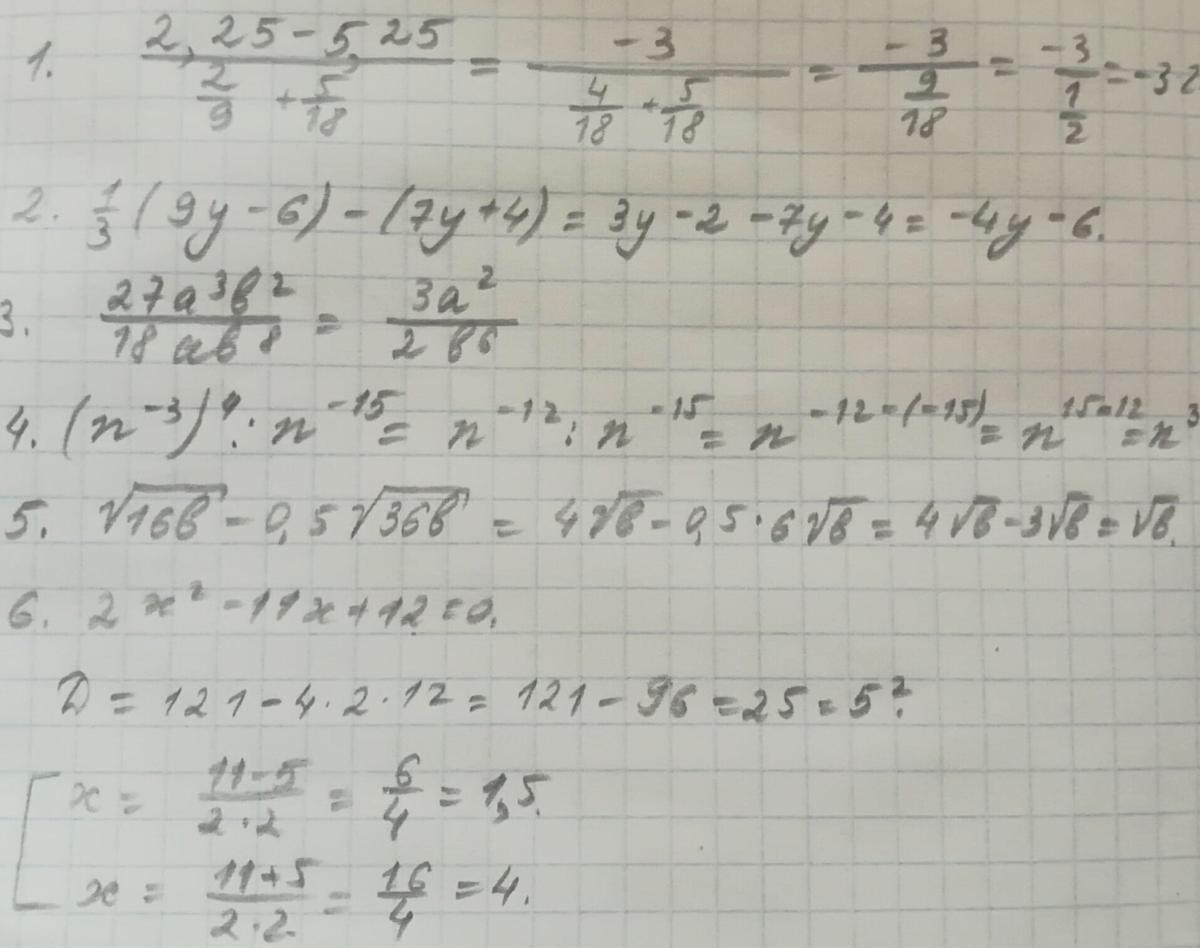 1. (2,25 - 5,25)/(2/9 + 5/18) = -3/(4/18 + 5/18) = -3/(9/18) = -3/(1/2) = -3·2
2. 1/3 (9y - 6) - (7y + 4) = 3y - 2 - 7y - 4 = -4y - 6.
3. 27a³b²/18ab⁸ = 3a²/2b⁶
4. (n⁻³)⁴ : n⁻¹⁵ = n⁻¹² : n⁻¹⁵ = n⁻¹²⁻⁽⁻¹⁵⁾ = n¹⁵⁻¹² = n³
5. √16b - 0,5√36b = 4√b - 0,5·6√b = 4√b - 3√b = √b.
6. 2x² - 11x + 12 = 0.
D = 121 - 4·2·12 = 121 - 96 = 25 = 5².
[ x = (11-5)/(2·2) = 6/4 = 1,5.
x = (11+5)/(2·2) = 16/4 = 4.